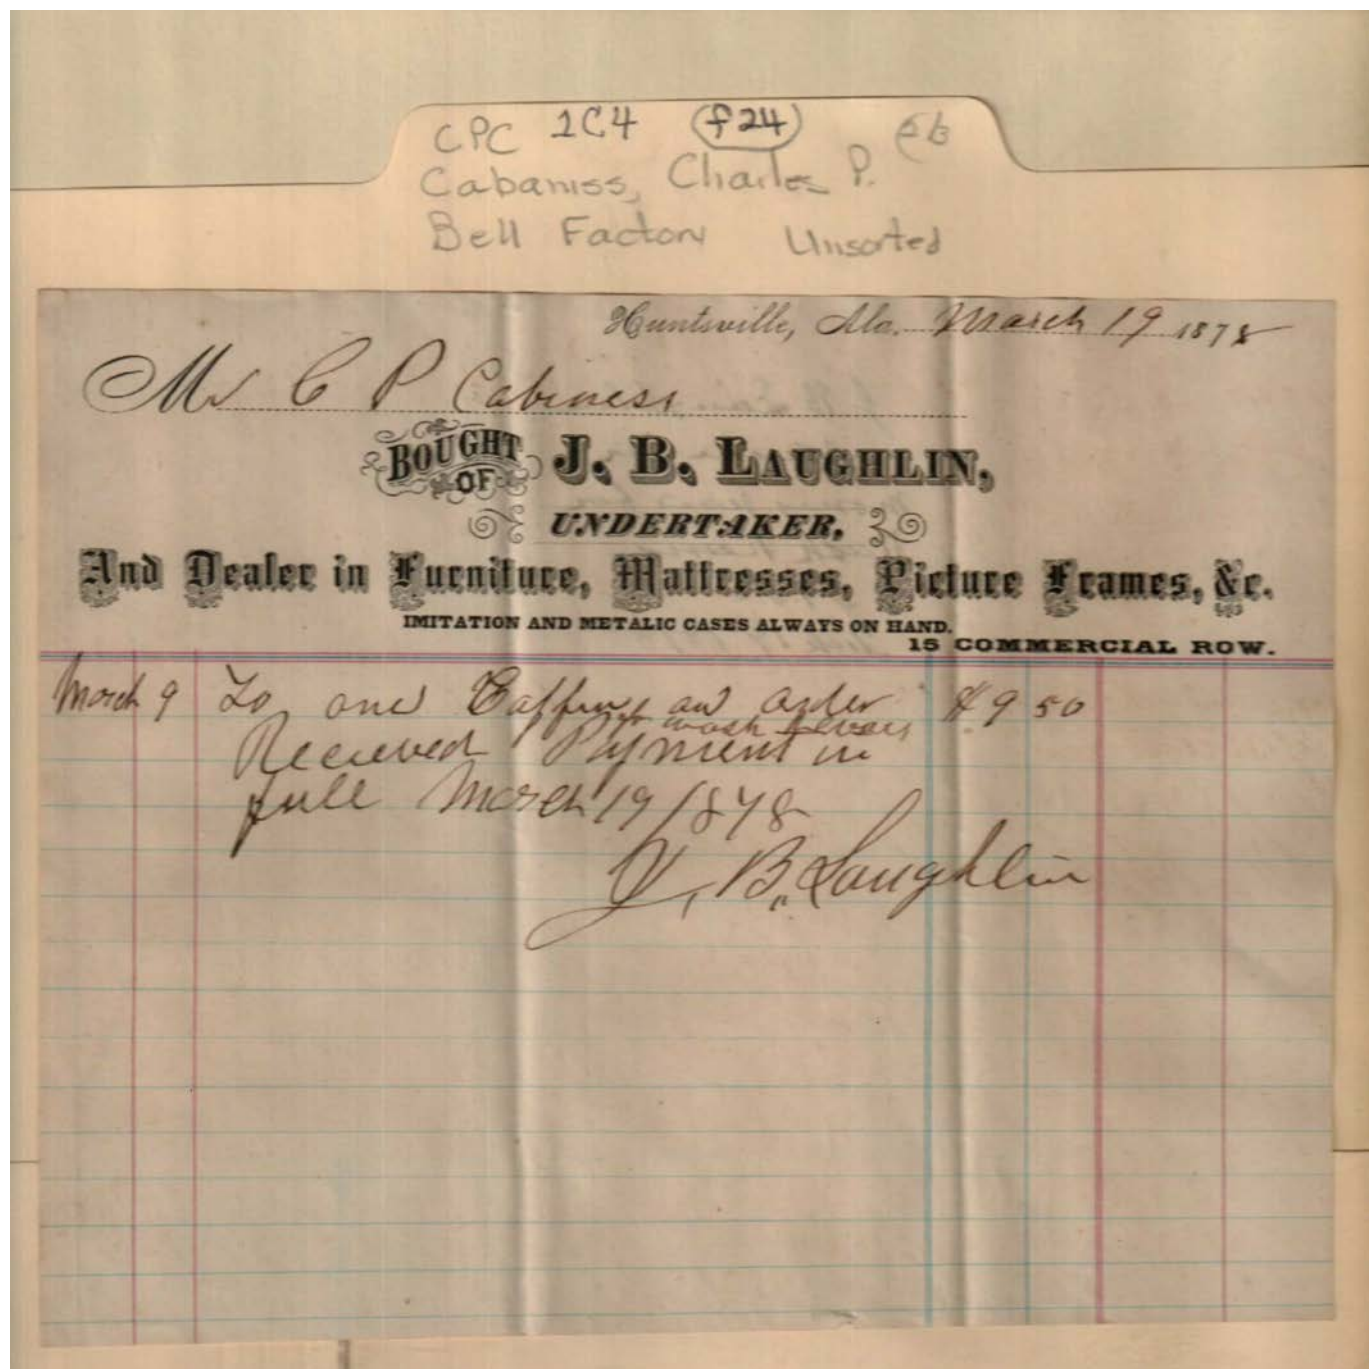 CPC 1C4 f24
Cabaniss, Charles P.
Bell Factory Unsorted
Huntsville, Ala. March 19 1878
Mr C P Cabiness
BOUGHT OF J. B. LAUGHLIN,
UNDERTAKER,
And Dealer in Furniture, Mattresses, Picture Frames, &c.
IMITATION AND METALIC CASES ALWAYS ON HAND.
15 COMMERCIAL ROW.
March 9 To one Coffin order $9 50
Recieved Payment in
full March 19 1878
J. B. Laughlin